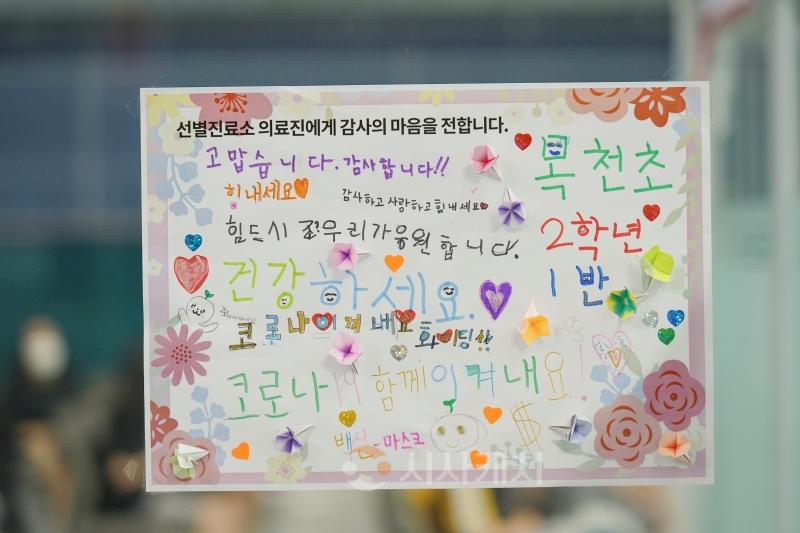 선별진료소 의료진에게 감사의 마음을 전합니다.
고맙습니다. 감사합니다!!
힘내세요
감사하고 사랑하고 힘내세요
힘드시죠 우리가 응원합니다.
건강하세요.
코로나 이겨내요 화이팅
코로나19 함께 이겨내요!
백신-마스크
$
복천초
2학년
1반
시사캐치